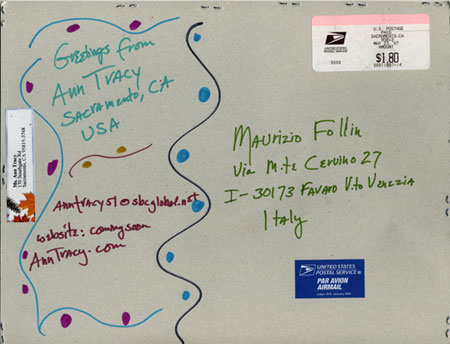 Greetings from
Ann Tracy
Sacramento, CA
USA
anntracy51@sbcglobal.net
website: coming soon
AnnTracy.com
Ms. Ann Tracy
Sacramento, CA 95815-3768
UNITED STATES
POSTAL SERVICE
U.S. POSTAGE
PAID
SACRAMENTO, CA
AMOUNT
$1.80
Maurizio Follin
Via M.te Cervino 27
I-30173 Favaro V.to Venezia
Italy
UNITED STATES
POSTAL SERVICE®
PAR AVION
AIRMAIL